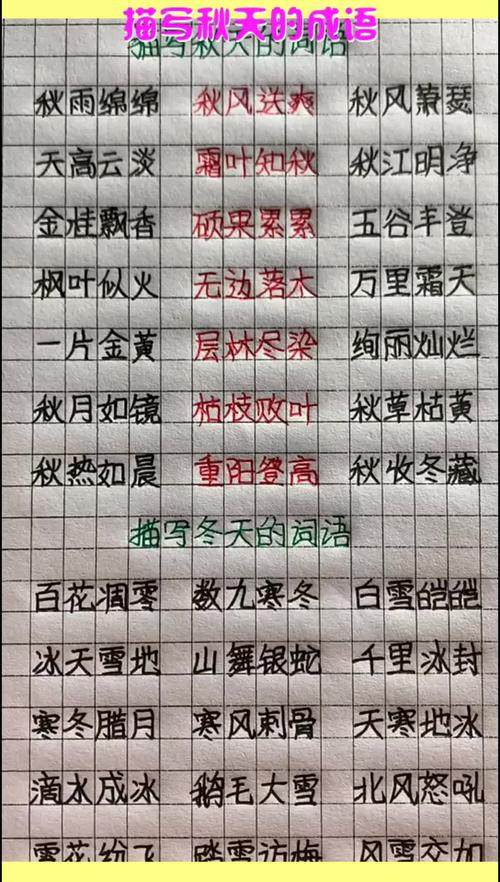 描写秋天的成语
描写秋天的词语
秋雨绵绵 秋风送爽 秋风萧瑟
天高云淡 霜叶知秋 秋江明净
金桂飘香 硕果累累 五谷丰登
枫叶似火 无边落木 万里霜天
一片金黄 层林尽染 绚丽灿烂
秋月如镜 枯枝败叶 秋草枯黄
秋热如晨 重阳登高 秋收冬藏
描写冬天的词语
百花凋零 数九寒冬 白雪皑皑
冰天雪地 山舞银蛇 千里冰封
寒冬腊月 寒风刺骨 天寒地冰
滴水成冰 鹅毛大雪 北风怒吼
雪花纷飞 踏雪访梅 风雪交加